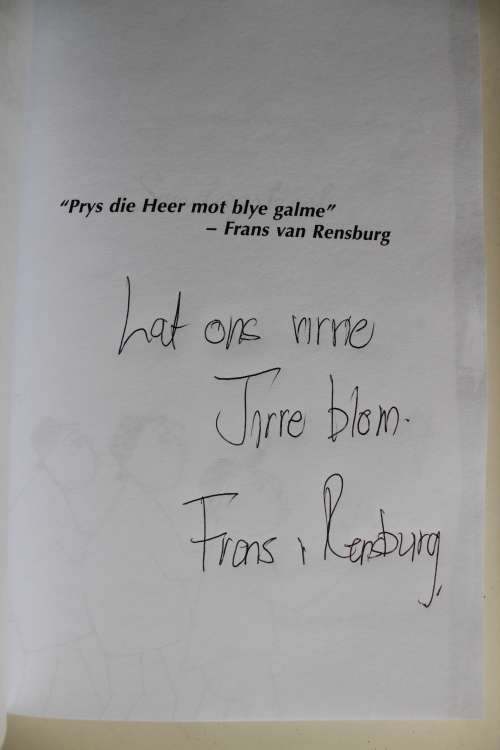 “Prys die Heer mot blye galme”
– Frans van Rensburg
Lat ons virrie
Jirre blom.
Frans v Rensburg